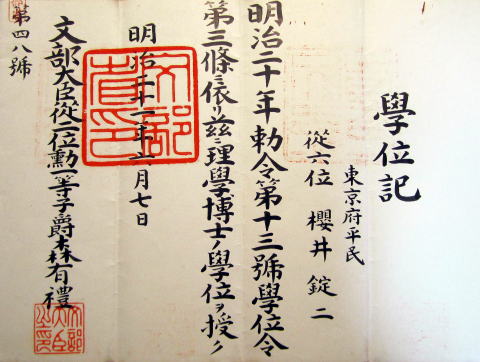 學位記
東京府平民
從六位 櫻井錠二
明治二十年勅令第十三號學位令
第三條ニ依リ茲ニ理學博士ノ學位ヲ授ク
明治二十一年六月七日
文部大臣從二位勳一等子爵森有禮
第四八號
文部省印
文部大臣之印